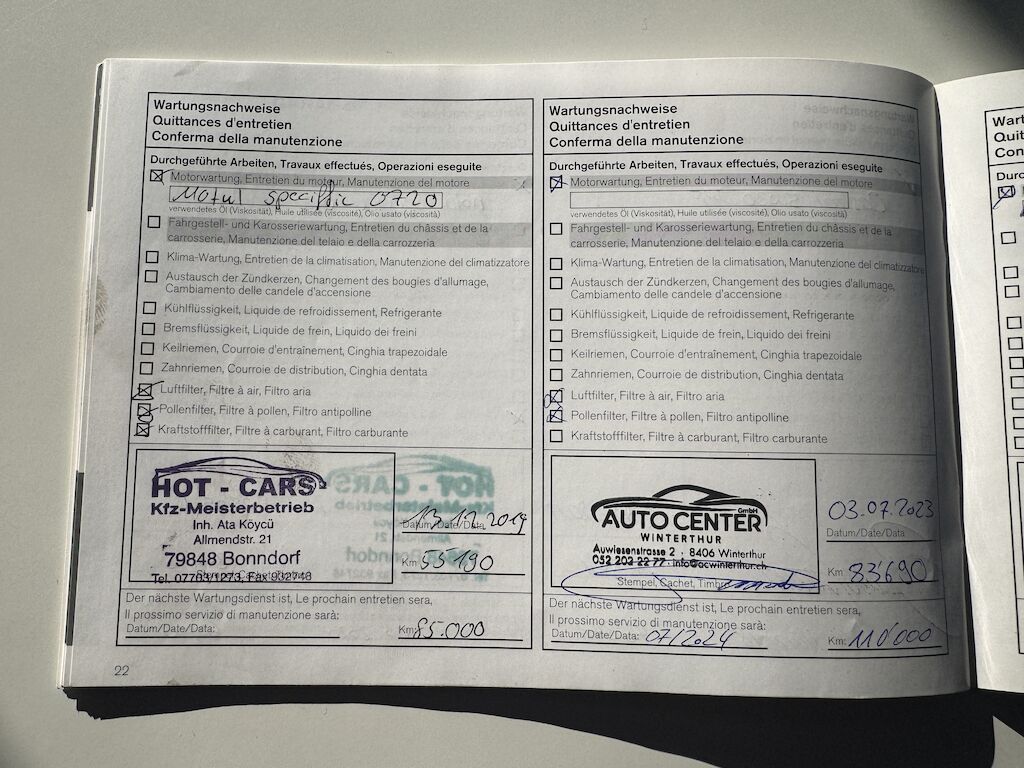 Wartungsnachweise
Quittances d'entretien
Conferma della manutenzione
Durchgeführte Arbeiten, Travaux effectués, Operazioni eseguite
Motorwartung, Entretien du moteur, Manutenzione del motore
Motul specific 0720
verwendetes Öl (Viskosität), Huile utilisée (viscosité), Olio usato (viscosità)
Fahrgestell- und Karosseriewartung, Entretien du châssis et de la
carrosserie, Manutenzione del telaio e della carrozzeria
Klima-Wartung, Entretien de la climatisation, Manutenzione del climatizzatore
Austausch der Zündkerzen, Changement des bougies d'allumage,
Cambiamento delle candele d'accensione
Kühlflüssigkeit, Liquide de refroidissement, Refrigerante
Bremsflüssigkeit, Liquide de frein, Liquido dei freini
Keilriemen, Courroie d'entraînement, Cinghia trapezoidale
Zahnriemen, Courroie de distribution, Cinghia dentata
Luftfilter, Filtre à air, Filtro aria
Pollenfilter, Filtre à pollen, Filtro antipolline
Kraftstofffilter, Filtre à carburant, Filtro carburante
HOT - CARS
Kfz-Meisterbetrieb
Inh. Ata Köycü
Allmendstr. 21
79848 Bonndorf
Tel. 07703/1273, Fax 932748
13.12.2019
Datum/Date/Data
Km 55190
Der nächste Wartungsdienst ist, Le prochain entretien sera,
Il prossimo servizio di manutenzione sarà:
Datum/Date/Data:
Km: 85.000
22
Wartungsnachweise
Quittances d'entretien
Conferma della manutenzione
Durchgeführte Arbeiten, Travaux effectués, Operazioni eseguite
Motorwartung, Entretien du moteur, Manutenzione del motore
verwendetes Öl (Viskosität), Huile utilisée (viscosité), Olio usato (viscosità)
Fahrgestell- und Karosseriewartung, Entretien du châssis et de la
carrosserie, Manutenzione del telaio e della carrozzeria
Klima-Wartung, Entretien de la climatisation, Manutenzione del climatizzatore
Austausch der Zündkerzen, Changement des bougies d'allumage,
Cambiamento delle candele d'accensione
Kühlflüssigkeit, Liquide de refroidissement, Refrigerante
Bremsflüssigkeit, Liquide de frein, Liquido dei freini
Keilriemen, Courroie d'entraînement, Cinghia trapezoidale
Zahnriemen, Courroie de distribution, Cinghia dentata
Luftfilter, Filtre à air, Filtro aria
Pollenfilter, Filtre à pollen, Filtro antipolline
Kraftstofffilter, Filtre à carburant, Filtro carburante
AUTO CENTER GmbH
WINTERTHUR
Auwiesenstrasse 2 · 8406 Winterthur
052 202 22 77 · info@acwinterthur.ch
Stempel, Cachet, Timbro
03.07.2023
Datum/Date/Data
Km 83'690
Der nächste Wartungsdienst ist, Le prochain entretien sera,
Il prossimo servizio di manutenzione sarà:
Datum/Date/Data: 07/2024
Km: 110'000